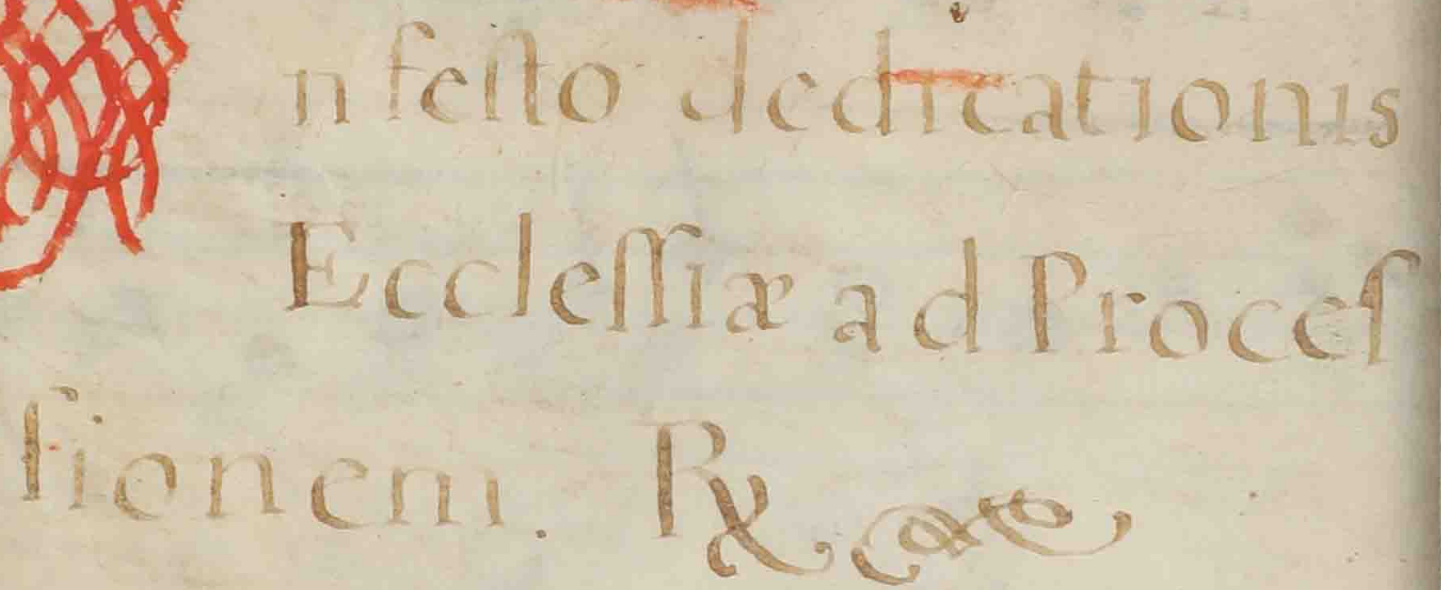 n feſto dedicationis
Eccleſſiæ ad Proceſ
ſionem. ℟